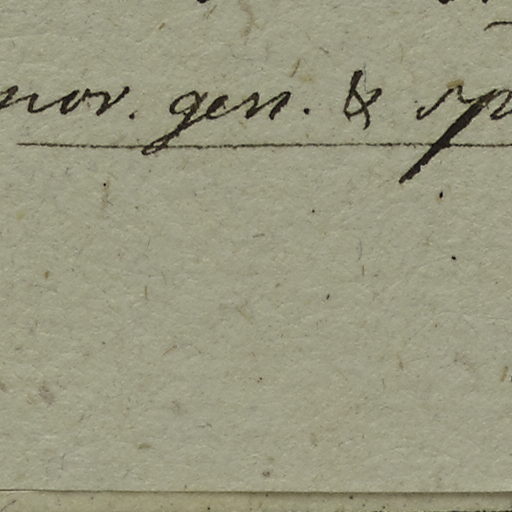 nov. gen. & sp